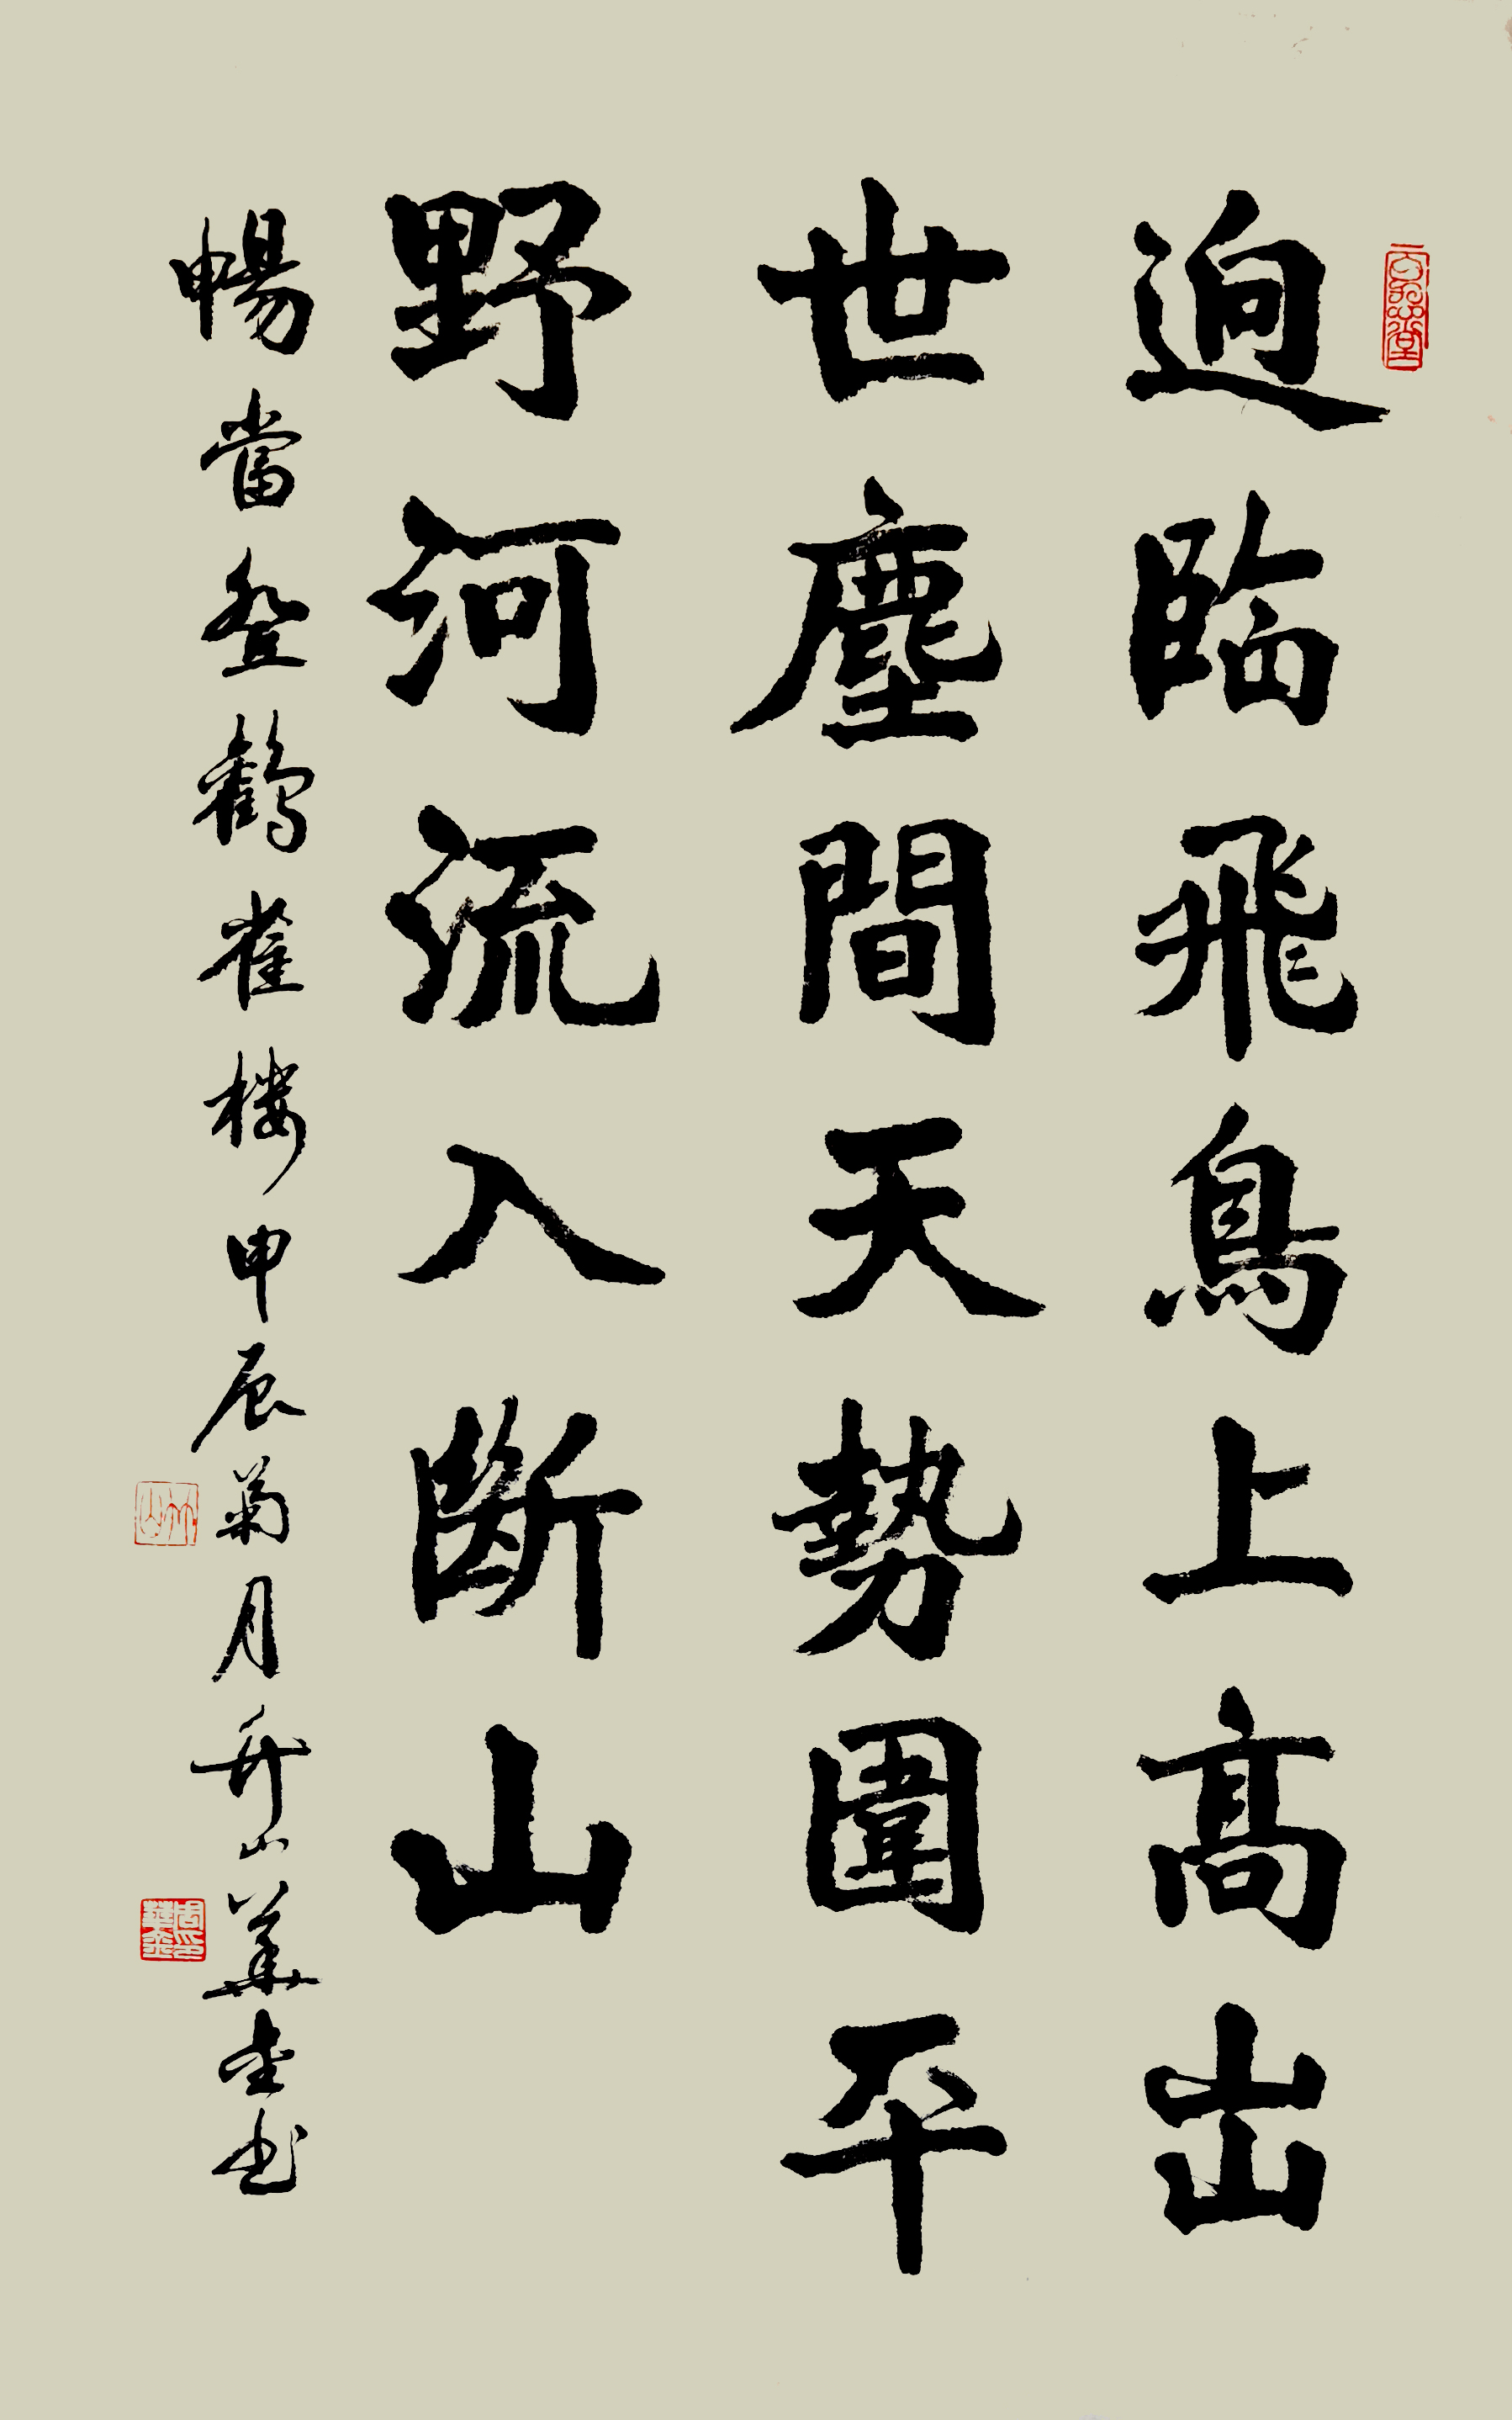 迥臨飛鳥上高出
世塵間天勢圍平
野河流入斷山
暢當登鸛雀樓甲辰菊月升山華奎书